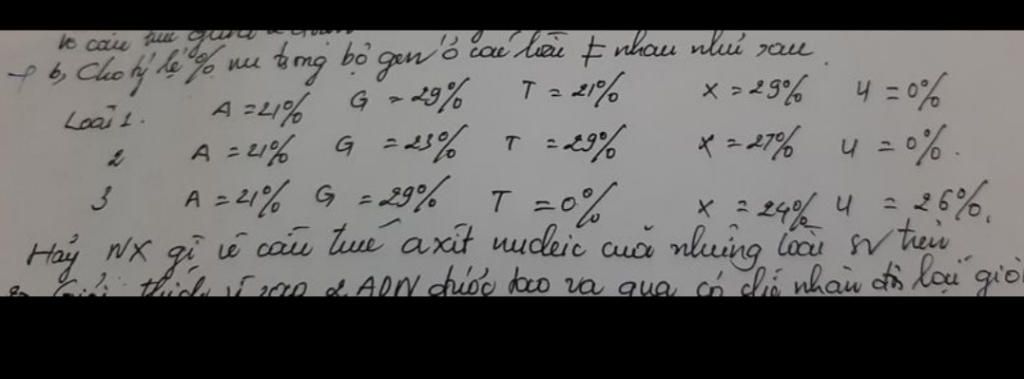 về cấu trúc
→ b, Cho tỷ lệ % nu trong bộ gen ở các loài ≠ nhau như sau.
Loài 1. A = 21% G = 29% T = 21% X = 29% U = 0%
2 A = 21% G = 23% T = 29% X = 27% U = 0%.
3 A = 21% G = 29% T = 0% X = 24% U = 26%.
Hãy NX gì về cấu trúc axit nucleic của những loài SV trên
Giải thích vì sao 2 ADN được tạo ra qua cơ chế nhân đôi lại giố